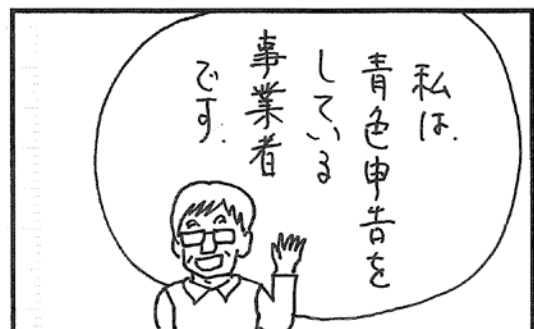 私は、
青色申告を
している
事業者
です。